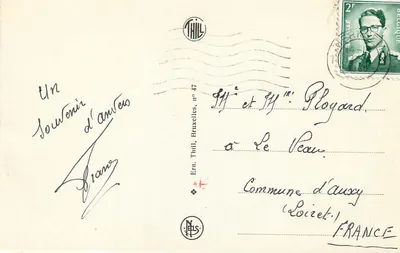 THILL
2F
BELGIQUE
Un
Souvenir
d'anvers
Ern. Thill, Bruxelles, n° 47
NELS
Mr et Mme Ployard.
à Le Veau.
Commune d'auxy
(Loiret.)
FRANCE